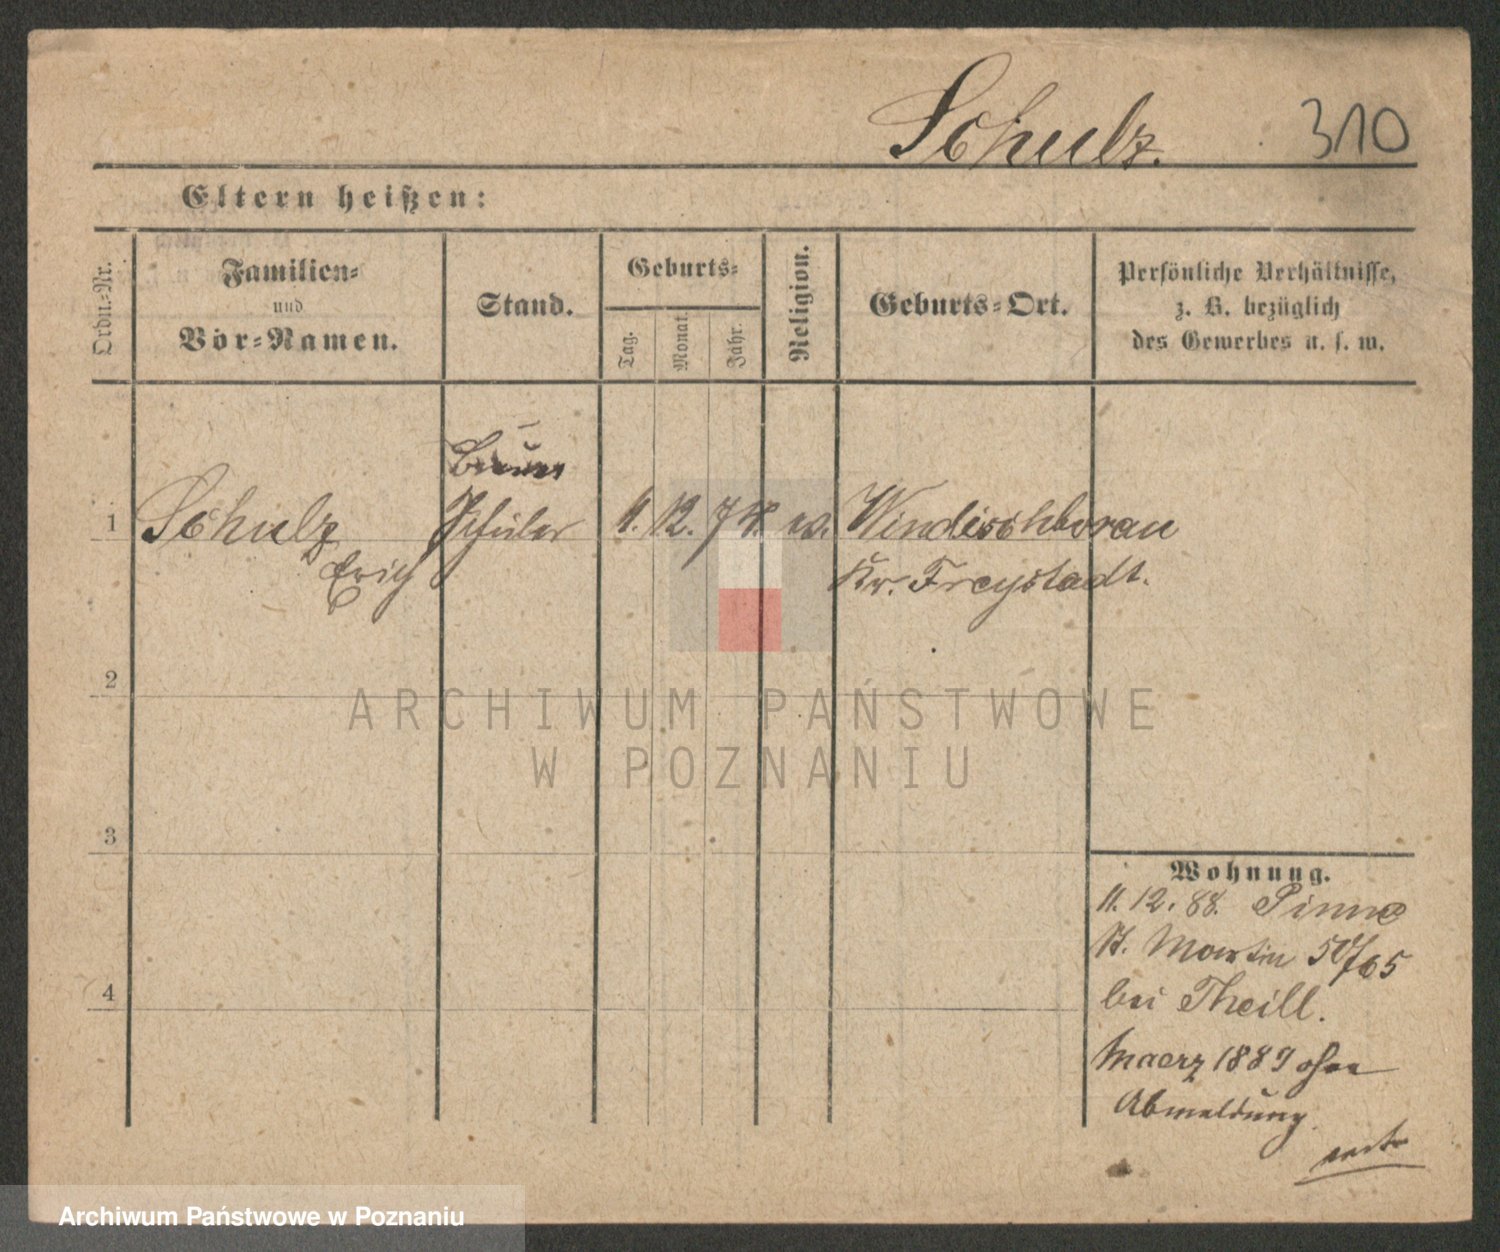 Schulz. 310
Eltern heißen:
Ordn.-Nr.
Familien-
und
Vor-Namen.
Stand.
Geburts-
Tag.
Monat.
Jahr.
Religion.
Geburts-Ort.
Persönliche Verhältnisse,
z. B. bezüglich
des Gewerbes u. s. w.
1 Schulz Schüler 4. 12. 74. ev. Windischborau
Erich Kr. Freystadt.
2
ARCHIWUM PAŃSTWOWE
W POZNANIU
3
4
Wohnung.
11. 12. 88. Pinne
St. Martin 50/65
bei Theill.
Maerz 1889 ohne
Abmeldung.
Archiwum Państwowe w Poznaniu